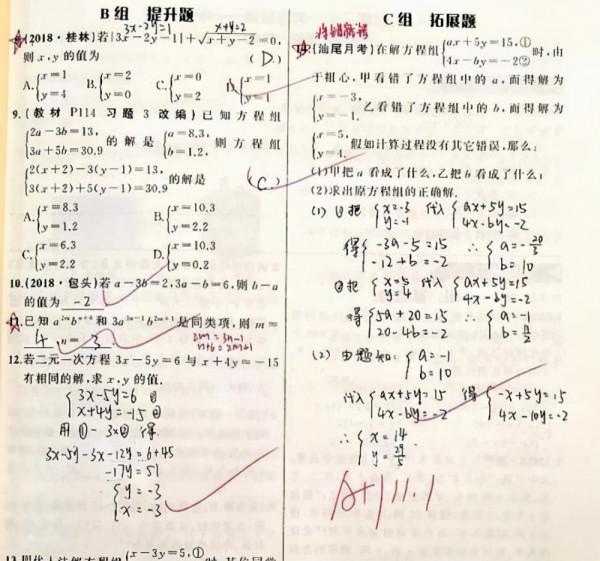 B组 提升题
3x-2y=1
x+y=2
(2018·桂林)若|3x-2y-1|+√(x+y-2)=0,
则x,y的值为 (D)
A.{x=1 y=4 B.{x=2 y=0 C.{x=0 y=2 D.{x=1 y=1
9.(教材P114习题3改编)已知方程组
{2a-3b=13, 3a+5b=30.9 的解是{a=8.3, b=1.2, 则方程组
{2(x+2)-3(y-1)=13, 3(x+2)+5(y-1)=30.9 的解是 (C)
A.{x=8.3 y=1.2 B.{x=10.3 y=2.2
C.{x=6.3 y=2.2 D.{x=10.3 y=0.2
10.(2018·包头)若a-3b=2,3a-b=6,则b-a
的值为 -2
11.已知 和 是同类项,则m=
4,n=3
2m=3n-1
n+6=2m+1
12.若二元一次方程3x-5y=6与x+4y=-15
有相同的解,求x,y的值.
{3x-5y=6 ①
x+4y=-15 ②
用①-3×② 得
3x-5y-3x-12y=6+45
-17y=51
{y=-3
x=-3
{x-3y=5,①
C组 拓展题
14.(汕尾月考)在解方程组{ax+5y=15,① 4x-by=-2② 时,由
于粗心,甲看错了方程组中的a,而得解为
{x=-3, y=-1. 乙看错了方程组中的b,而得解为
{x=5, y=4. 假如计算过程没有其它错误,那么:
(1)甲把a看成了什么,乙把b看成了什么;
(2)求出原方程组的正确解.
(1) ①把{x=-3 y=-1 代入{ax+5y=15 4x-by=-2
得{-3a-5=15 -12+b=-2 ∴{a=-20/3 b=10
②把{x=5 y=4 代入{ax+5y=15 4x-by=-2
得{5a+20=15 20-4b=-2 ∴{a=-1 b=11/2
(2) 由题知:{a=-1 b=10
代入{ax+5y=15 4x-by=-2 得{-x+5y=15 4x-10y=-2
∴{x=14 y=29/5
A+ 11.1